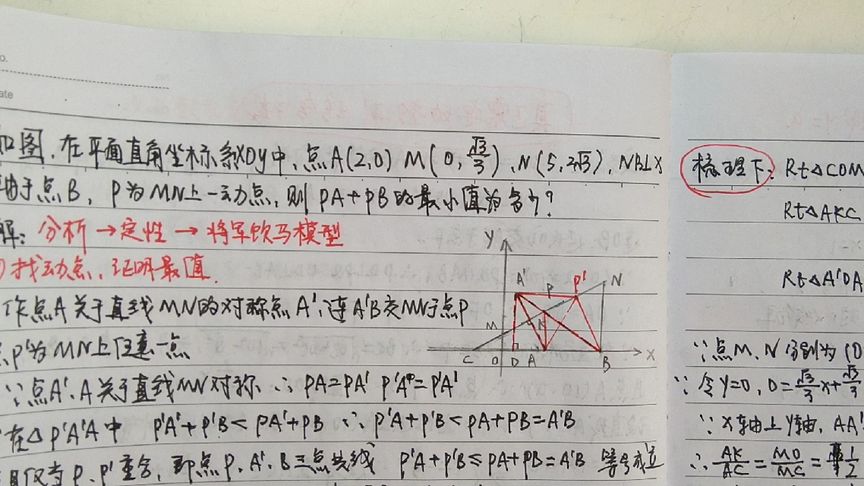 o.
ate
如图,在平面直角坐标系xOy中,点A(2,0) M(0,√3/3),N(5,2√3),NB⊥x
轴于点B,P为MN上一动点,则PA+PB的最小值为多少?
解:分析→定性→将军饮马模型
①找动点,证明最值
作点A关于直线MN的对称点A',连A'B交MN于点P
点P'为MN上任意一点
∵点A'、A关于直线MN对称 ∴PA=PA' P'A=P'A'
在△P'A'A中 P'A'+P'B<PA'+PB ∵P'A+P'B<PA+PB=A'B
且仅当P、P'重合,即点P、A'、B三点共线 P'A+P'B≤PA+PB=A'B 等号成立
y
A'
P
P'
N
M
K
C
O
D
A
B
x
梳理下:Rt△COM
Rt△AKC
Rt△A'DA
∵点M、N分别为(0
∵令y=0,0=√3/3x+√3/3
∵x轴⊥y轴,AA'
∴AK/AC=MO/MC=1/2